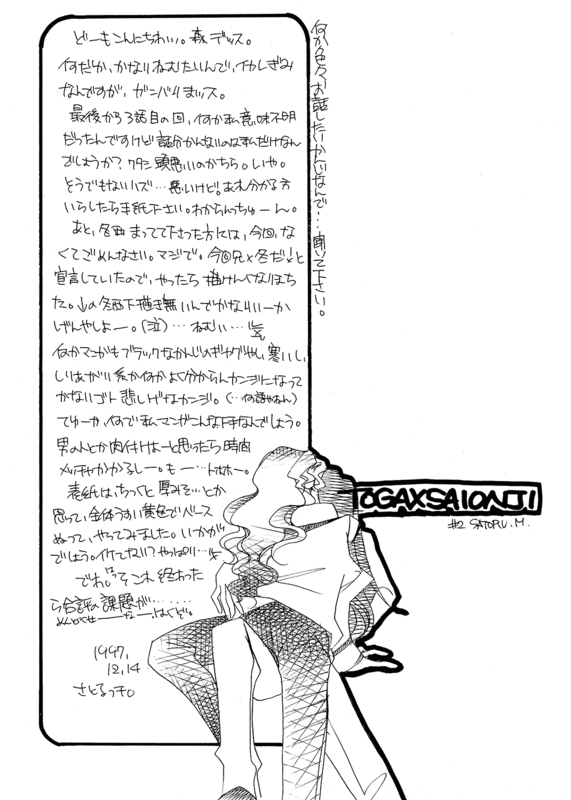 どーもこんにちわい。森デッス。
何だか、かなりねむたいんで、イカしぎみ
なんですが、ガンバりまッス。
最後から3話目の回、何かまん意味不明
だったんですけど 話分かんないのはまんだけなん
でしょうか? ワタシ頭悪いのかちら。いや。
どうでもないハズ…悪いけど!あれ分かる方
いらしたら手紙下さい。わからんっちゅーん。
あと、冬西まってて下さった方々には、今回、な
くてごめんなさい。マジで。今回兄×冬だ!と
宣言していたので、やったら描けんくなりまち
た。↓の冬西下描き無いんでかなりいーか
げんやしよー。(泣)…ねむい…
何かマンガもブラックなかんじのギャグやし 寒いし、
しりあがり系か何かよく分からんカンジになって
かないゴト 悲しげなカンジ。(…何語やねん)
てゆーか、何でまんマンガこんな下手なんでしょう。
男の人とか肉付けはーと思ったら時間
メッチャかかるしー。もー…トホホー。
表紙は、ちっくと厚みぞ…とか
思って、全体うすい黄色でベース
ぬって、やってみました。いかがで
でしょう。イケてない?やっぱり…
でわ。そこれ終わった
ら合評の課題が……
めんどくせーなー。はくぞ。
1997.
12.14
さとるっチ。
何か色々、お話したいかんじなんで…聞いて下さい。
TOGAXSAIONJI
#2 SATORU.M.